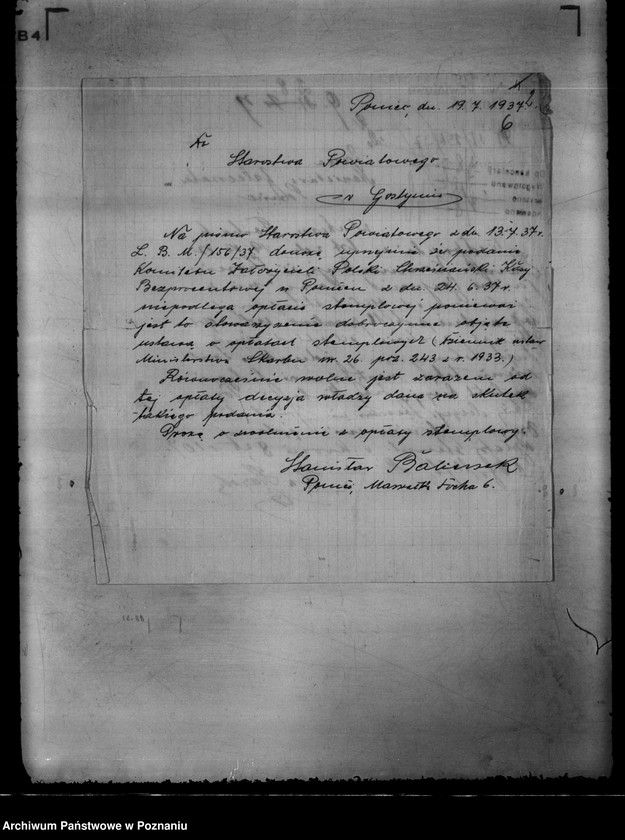 B4
Poniec, dn. 19. 7. 1937 r.
6
Do
Starostwa Powiatowego
w Gostyniu
Na pismo Starostwa Powiatowego z dn. 13.7.37 r.
L. B. M./156/37 donoszę uprzejmie że podanie
Komitetu Założycieli Polski Chrześcijański Kasy
Bezprocentowej w Poniecu z dn. 24. 6. 37 r.
niepodlega opłacie stemplowej ponieważ
jest to stowarzyszenie dobroczynne objęte
ustawą o opłatach stemplowych (Dziennik ustaw
Ministerstwa Skarbu nr. 26. poz. 243 z r. 1933.)
Równocześnie wolne jest zarazem od
tej opłaty decyzja władzy dana na skutek
takiego podania.
Proszę o zwolnienie z opłaty stemplowej.
Stanisław
Poniec, Marszałka Focha 6.
Archiwum Państwowe w Poznaniu